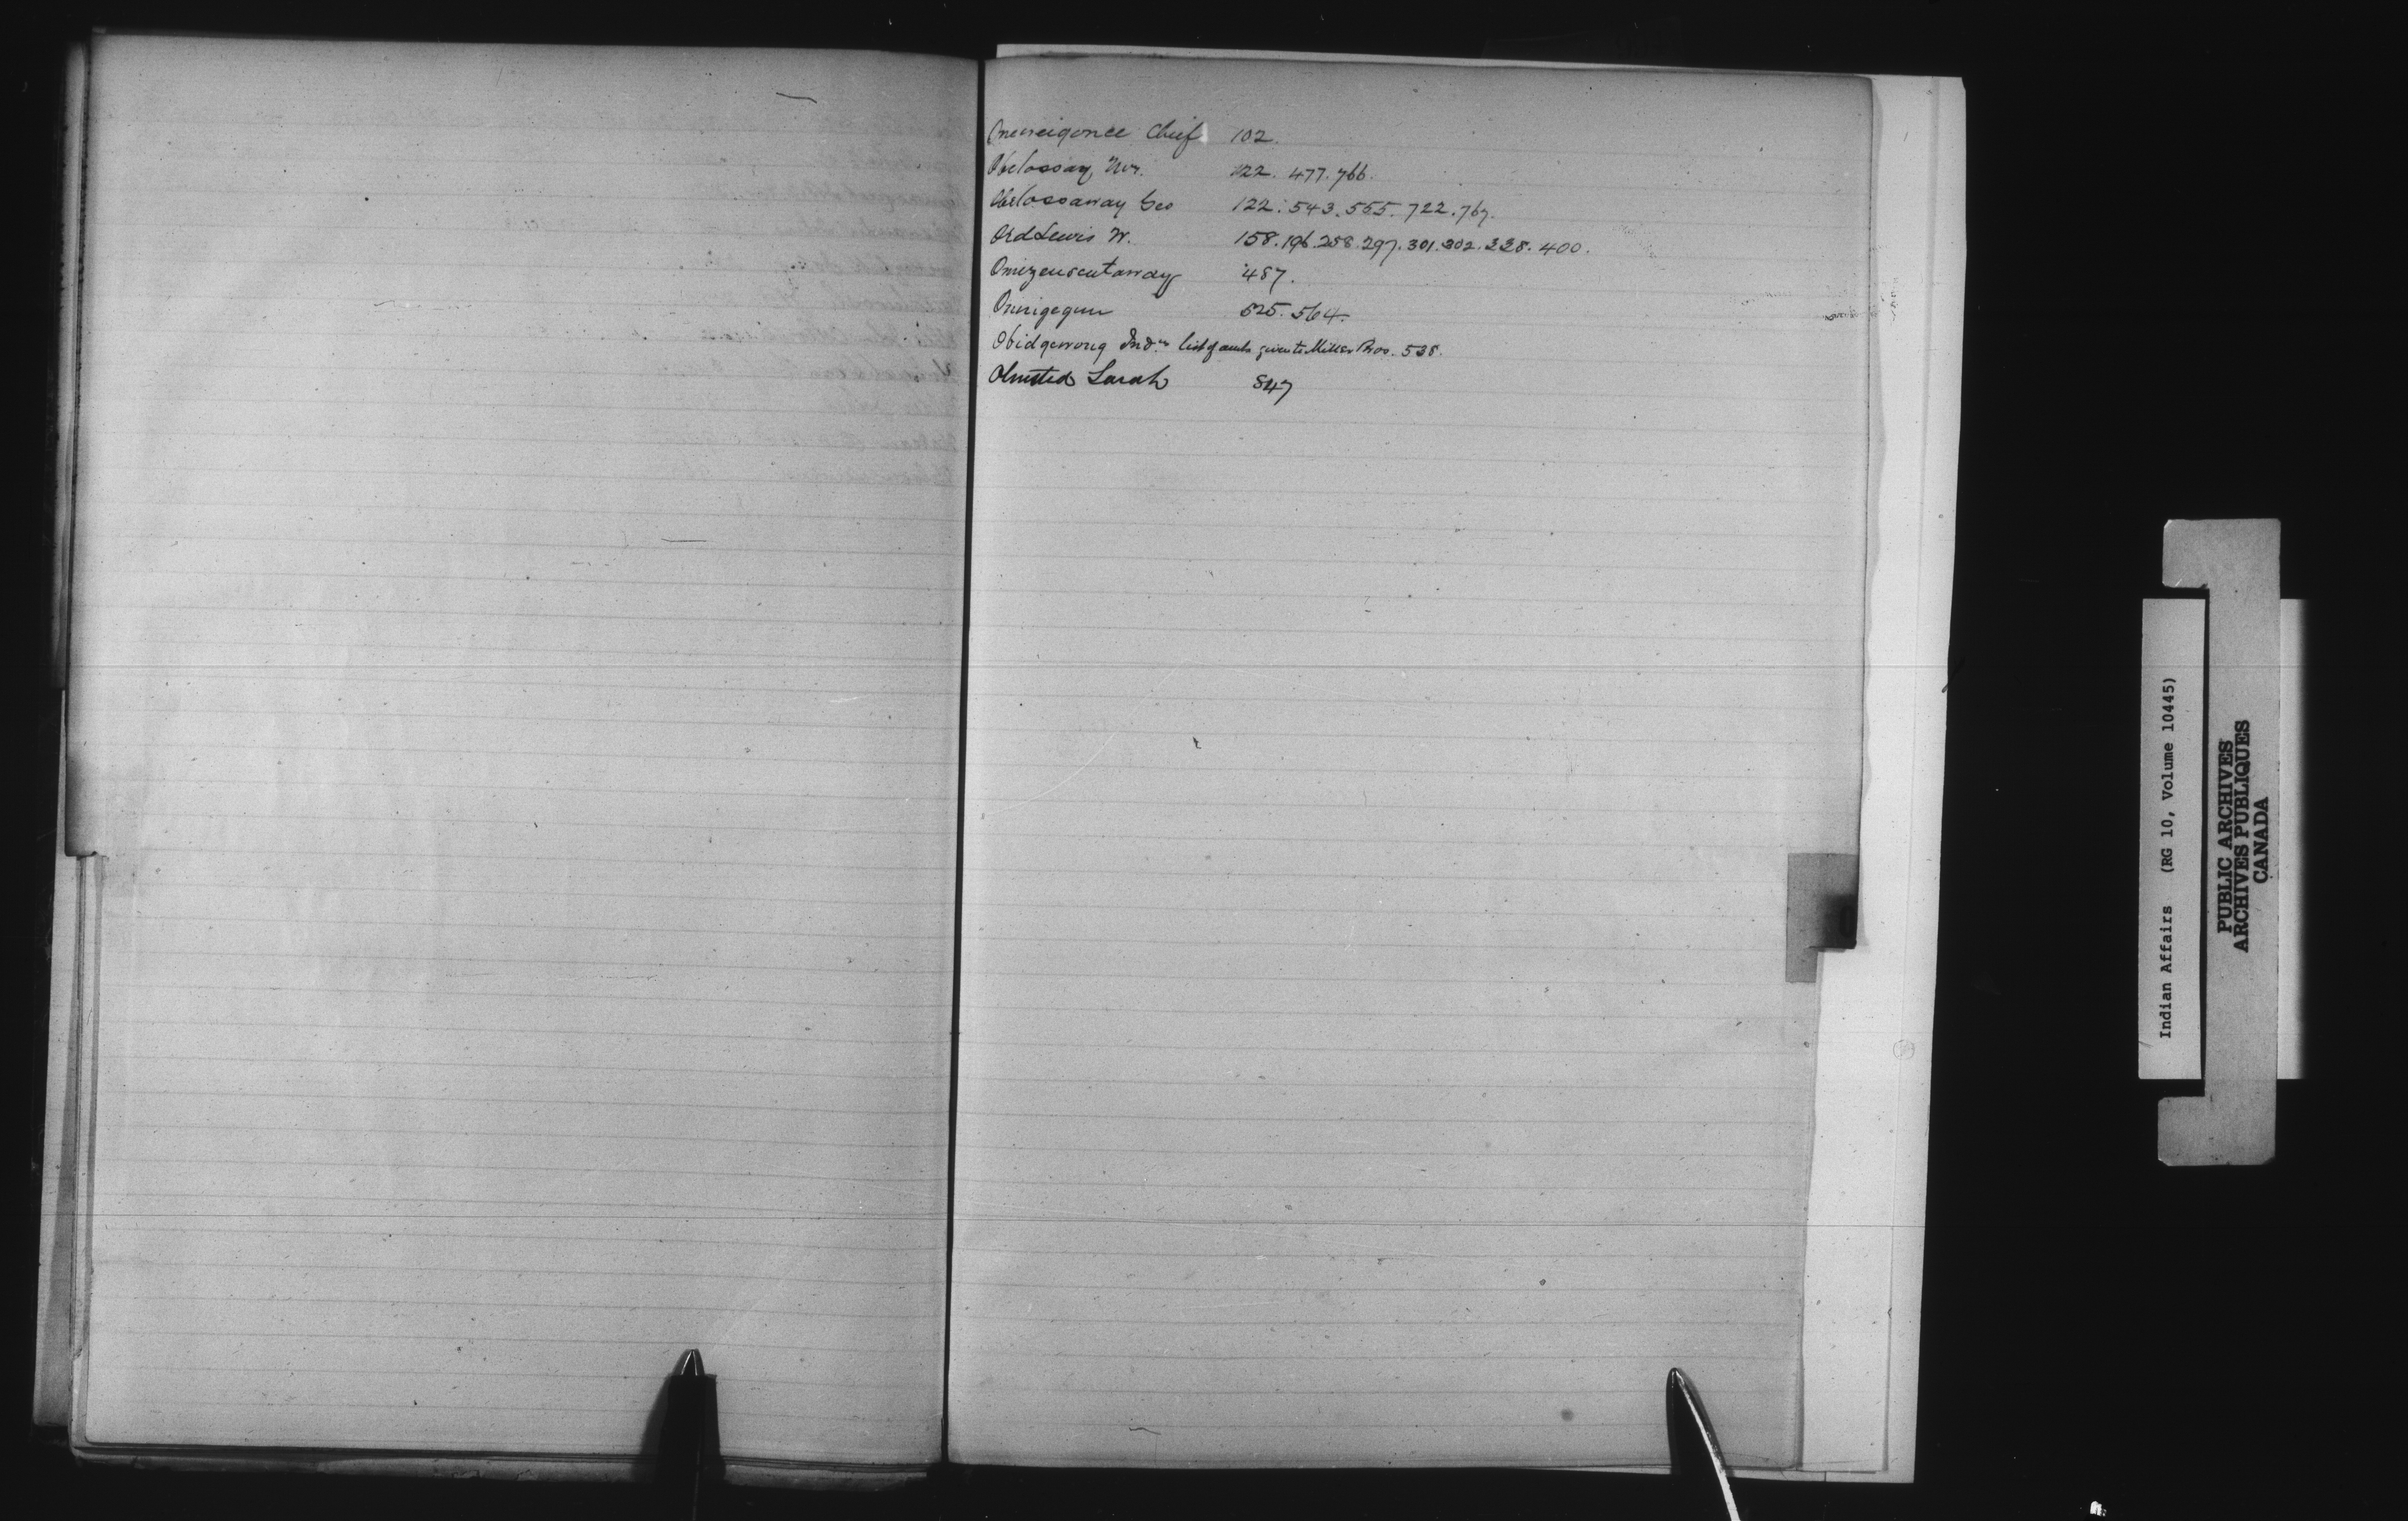 Chief 102.
122. 477. 766.
Obetossaway Geo 122. 543. 555. 722. 767.
Ord Lewis W. 158. 196. 258. 297. 301. 302. 338. 400.
487.
Omigegun 525. 564.
Obidgewong Indns list of accts given to Miller Bros. 538.
Olmsted Sarah 547
O
Indian Affairs (RG 10, Volume 10445)
PUBLIC ARCHIVES
ARCHIVES PUBLIQUES
CANADA